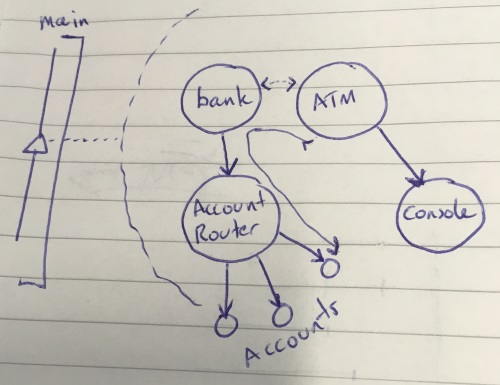 main
bank
ATM
Account
Router
Console
Accounts